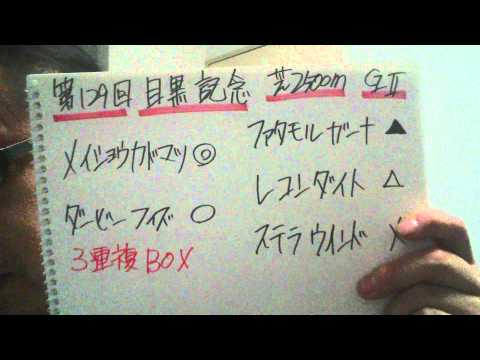 第129回 目黒記念 芝2500m GⅡ
メイショウカドマツ ◎
ダービーフィズ ○
3重複BOX
ファタモルガーナ ▲
レコンダイト △
ステラウインド ×